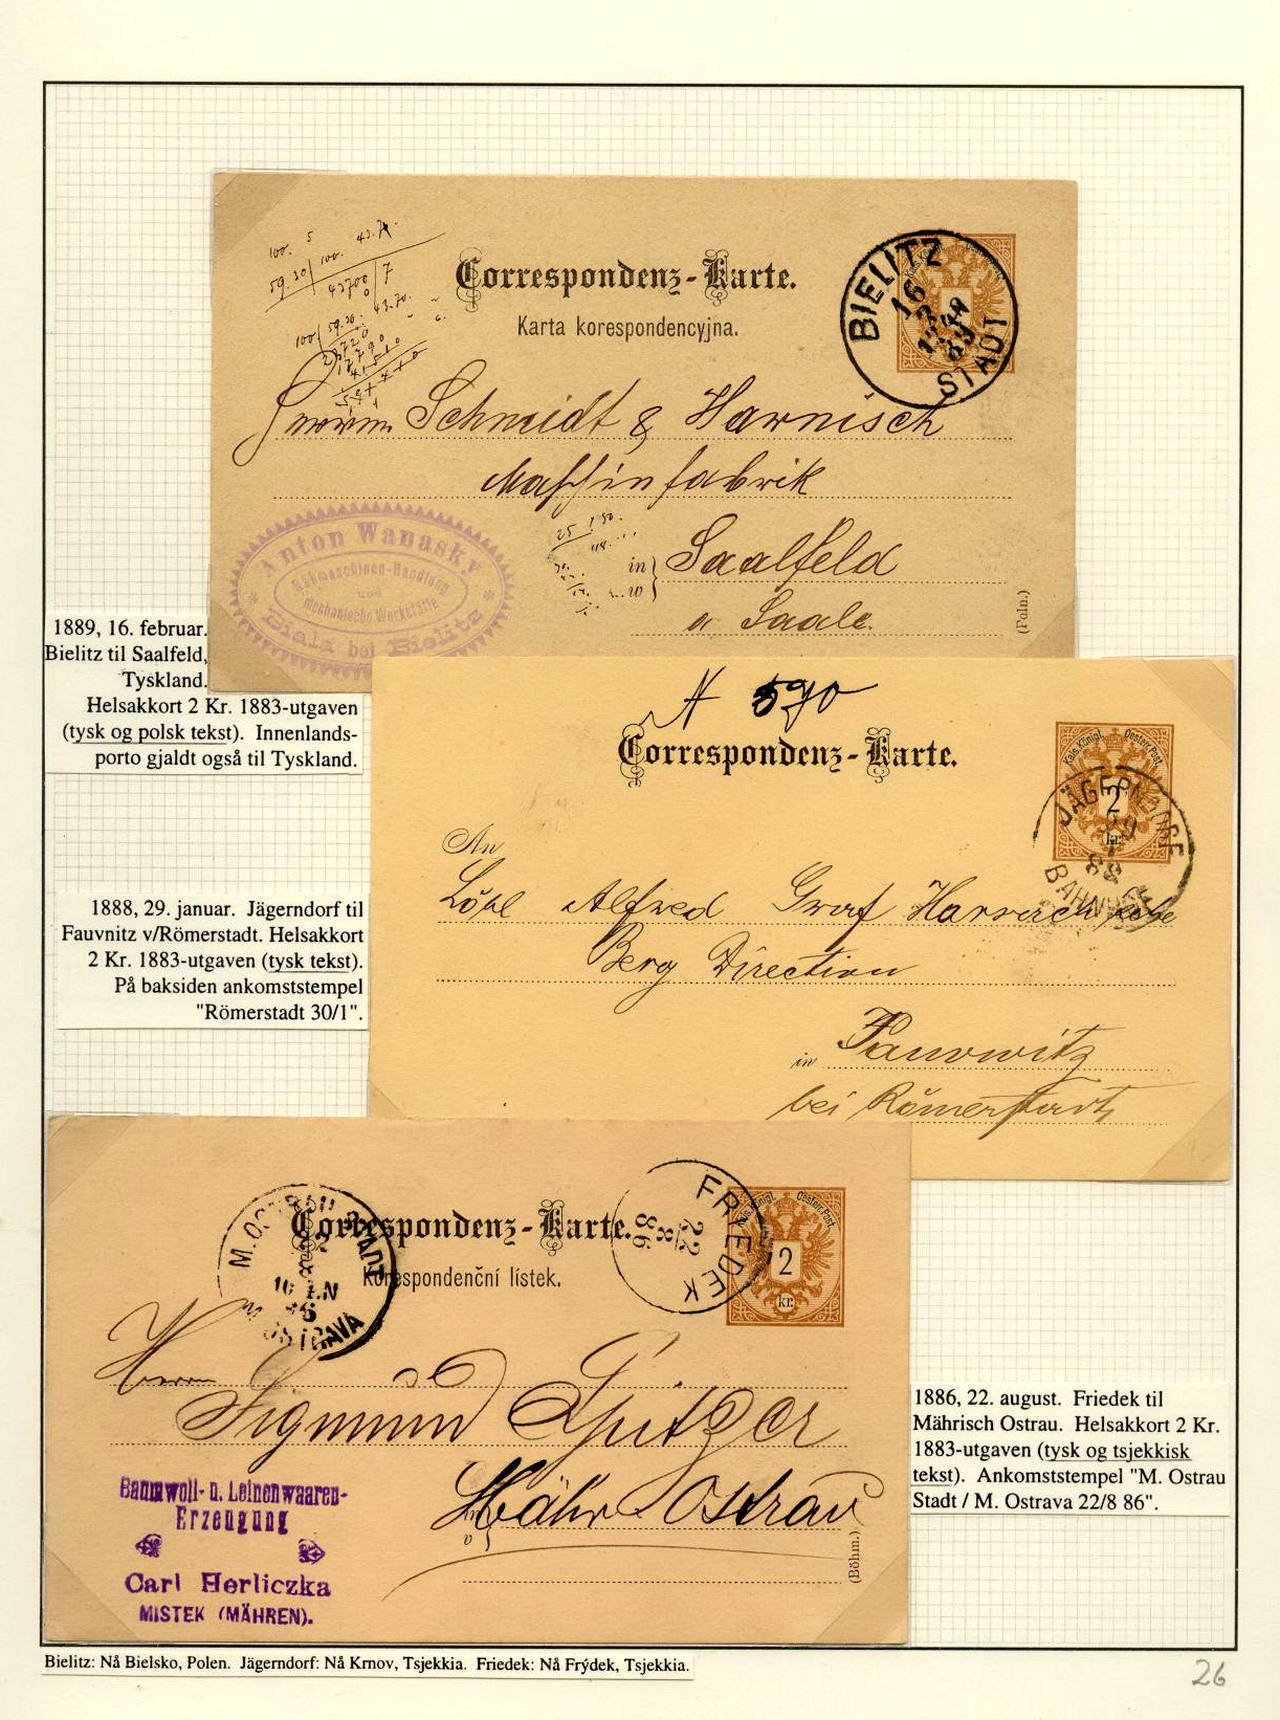 Correspondenz-Karte.
Karta korespondencyjna.
Kais. Königl. Oesterr. Post.
BIELITZ
16
2
89
STADT
100. 5
59.20 100. 43.70
43700 7
100 59.20 43.70
Herrn Schmidt & Harnisch
Maschinfabrik
in Saalfeld
a Saale.
25
(Poln.)
Anton Wanasky
Nähmaschinen-Handlung
und
mechanische Werkstätte
Biala bei Bielitz
1889, 16. februar.
Bielitz til Saalfeld,
Tyskland.
Helsakkort 2 Kr. 1883-utgaven
(tysk og polsk tekst). Innenlands-
porto gjaldt også til Tyskland.
N 590
Correspondenz-Karte.
Kais. Königl. Oesterr. Post.
2
kr.
JÄGERNDORF
88
BAHNHOF
An
Löbl Alfred Graf Harrach'sche
Berg Direction
in Janowitz
bei Römerstadt
1888, 29. januar. Jägerndorf til
Fauvnitz v/Römerstadt. Helsakkort
2 Kr. 1883-utgaven (tysk tekst).
På baksiden ankomststempel
"Römerstadt 30/1".
Correspondenz-Karte.
Korespondenční lístek.
Kais. Königl. Oesterr. Post.
2
kr.
FRIEDEK
22
8
86
M. OSTRAU STADT
M. OSTRAVA
Herrn
Sigmund Spitzer
Mähr Ostrau
(Böhm.)
Baumwoll- u. Leinenwaaren-
Erzeugung
Carl Herliczka
MISTEK (MÄHREN).
1886, 22. august. Friedek til
Mährisch Ostrau. Helsakkort 2 Kr.
1883-utgaven (tysk og tsjekkisk
tekst). Ankomststempel "M. Ostrau
Stadt / M. Ostrava 22/8 86".
Bielitz: Nå Bielsko, Polen. Jägerndorf: Nå Krnov, Tsjekkia. Friedek: Nå Frýdek, Tsjekkia.
26